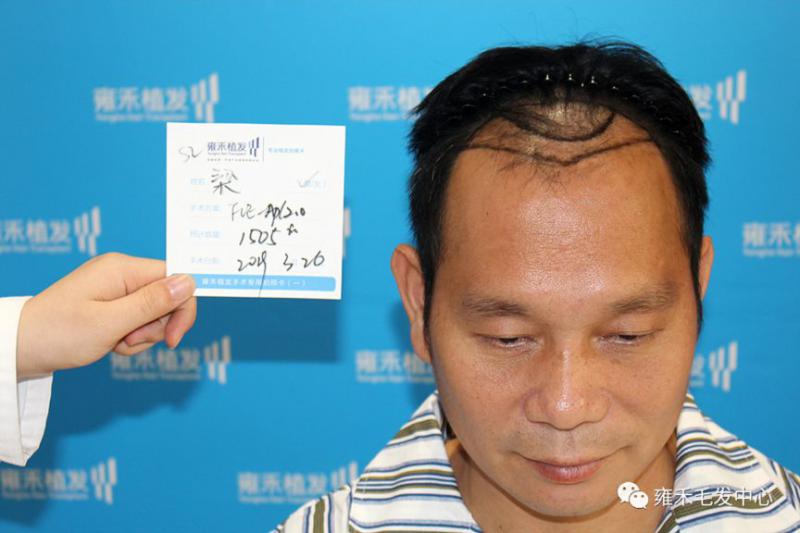 雍禾植发
雍禾植发
雍禾植发
SL 雍禾植发
Yonghe Hair Transplant
姓名: 梁
手术方案: FUE-Apl2.0
预计数量: 1505
手术日期: 2019 3.26
雍禾植发手术专用拍照卡(一)
雍禾植发
雍禾植发
雍禾植发
雍禾植发
雍禾植发
雍禾植发
雍禾植发
雍禾毛发中心